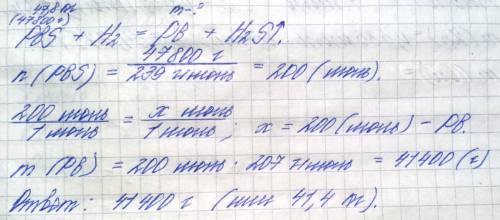 47,8 кг
(47800 г) m-?
PbS + H2 = Pb + H2S↑.
n(PbS) = 47800 г / 239 г/моль = 200 (моль).
200 моль / 1 моль = x моль / 1 моль; x = 200 (моль) - Pb.
m (Pb) = 200 моль · 207 г/моль = 41400 (г)
Ответ: 41400 г (или 41,4 кг).